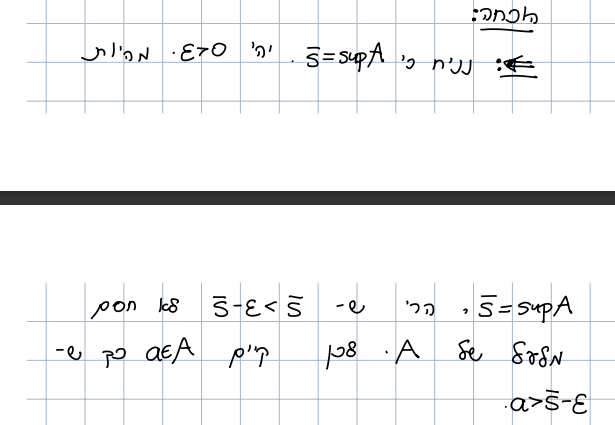 הוכחה:
⇐: נניח כי s̄=supA. יהי ε>0. מהיות
s̄=supA, הרי ש- s̄-ε<s̄ לא חסם
מלעיל של A. לכן קיים a∈A כך ש-
a>s̄-ε.